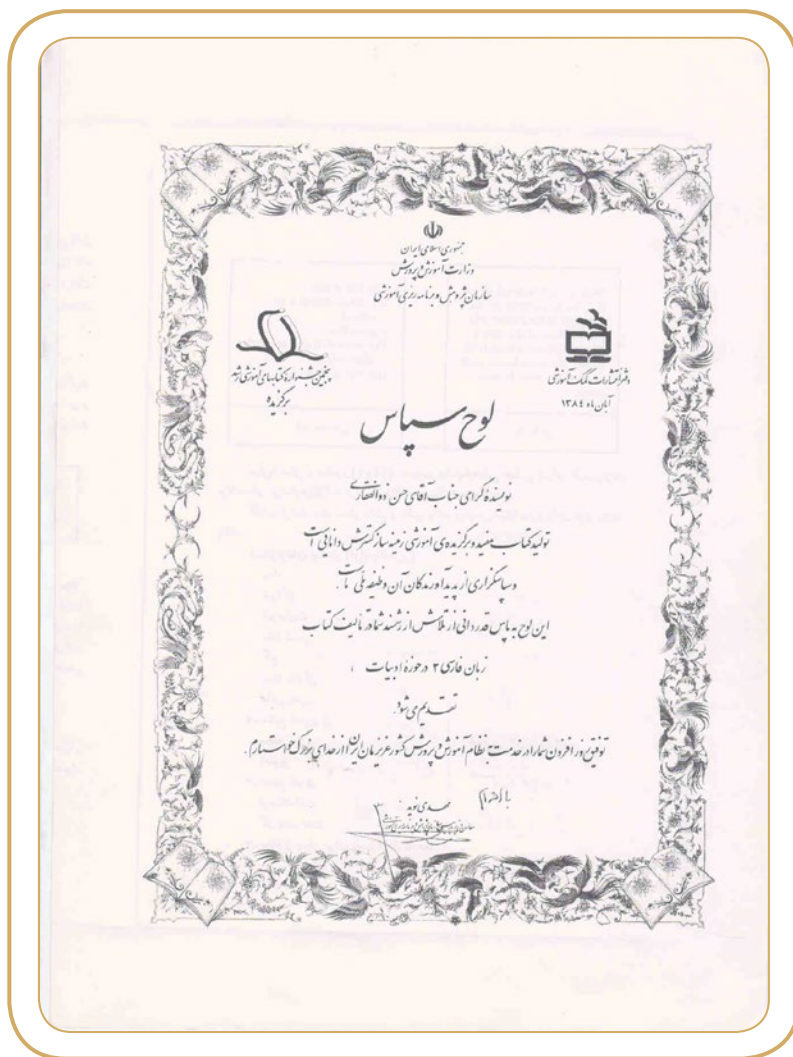 جمهوری اسلامی ایران
وزارت آموزش و پرورش
سازمان پژوهش و برنامه ریزی آموزشی
دفتر انتشارات کمک آموزشی
آبان ماه ۱۳۸٤
پنجمین جشنواره کتابهای آموزشی رشد
برگزیده
لوح سپاس
نویسنده گرامی جناب آقای حسن ذوالفقاری
تولید کتاب مفید و برگزیده‌ی آموزشی زمینه ساز گسترش دانایی است
و سپاسگزاری از پدیدآورندگان آن وظیفه ملی ماست.
این لوح به پاس قدردانی از تلاش ارزشمند شما در تألیف کتاب
زبان فارسی ۲ در حوزهٔ ادبیات ،
تقدیم می شود.
توفیق روز افزون شما را در خدمت به نظام آموزش و پرورش کشور عزیزمان ایران از خدای بزرگ خواستارم.
با احترام
مهدی نوید